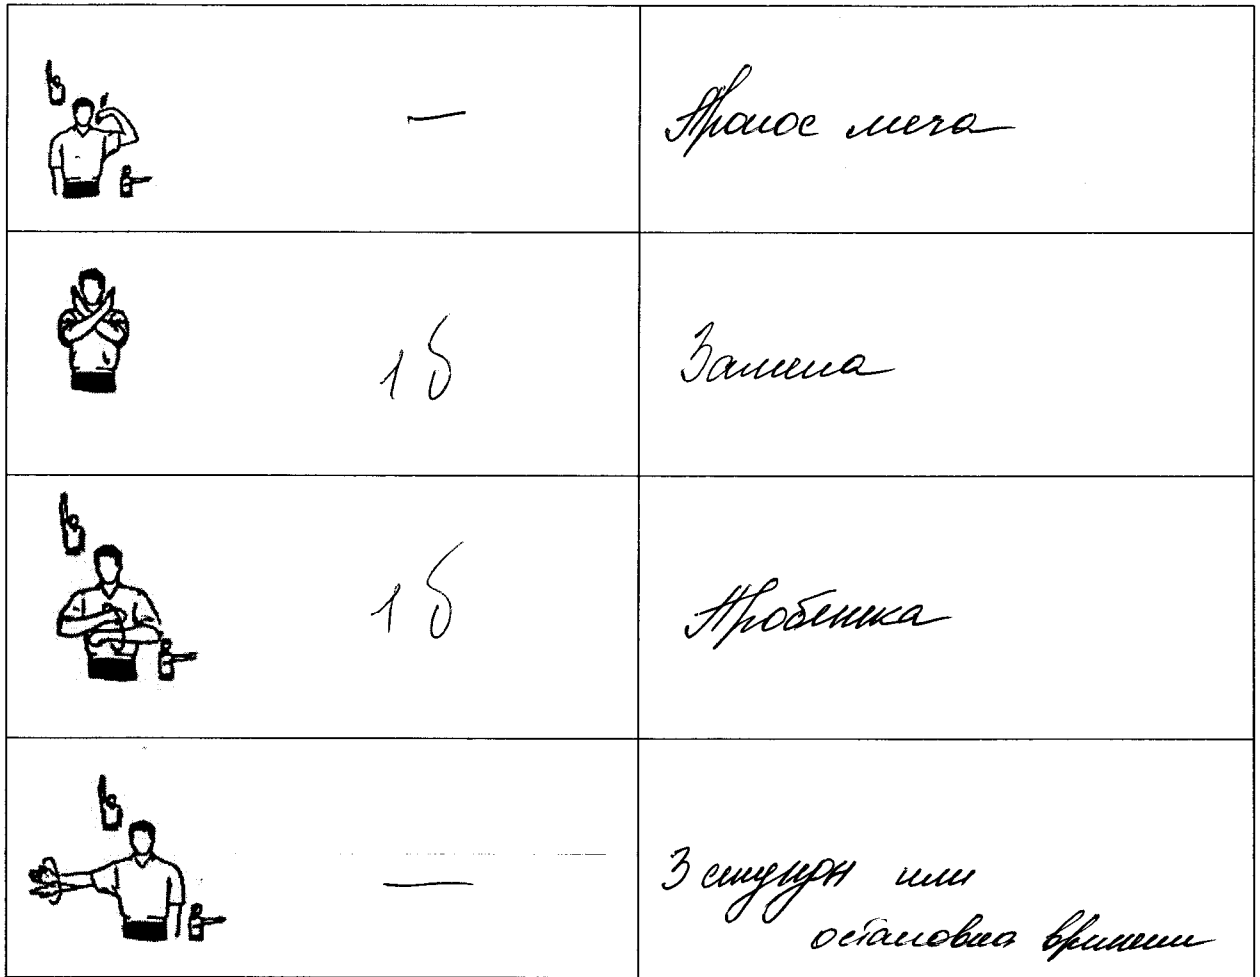 —
Пронос мяча
1 б
Замена
1 б
Пробежка
—
3 секунды или
остановка времени